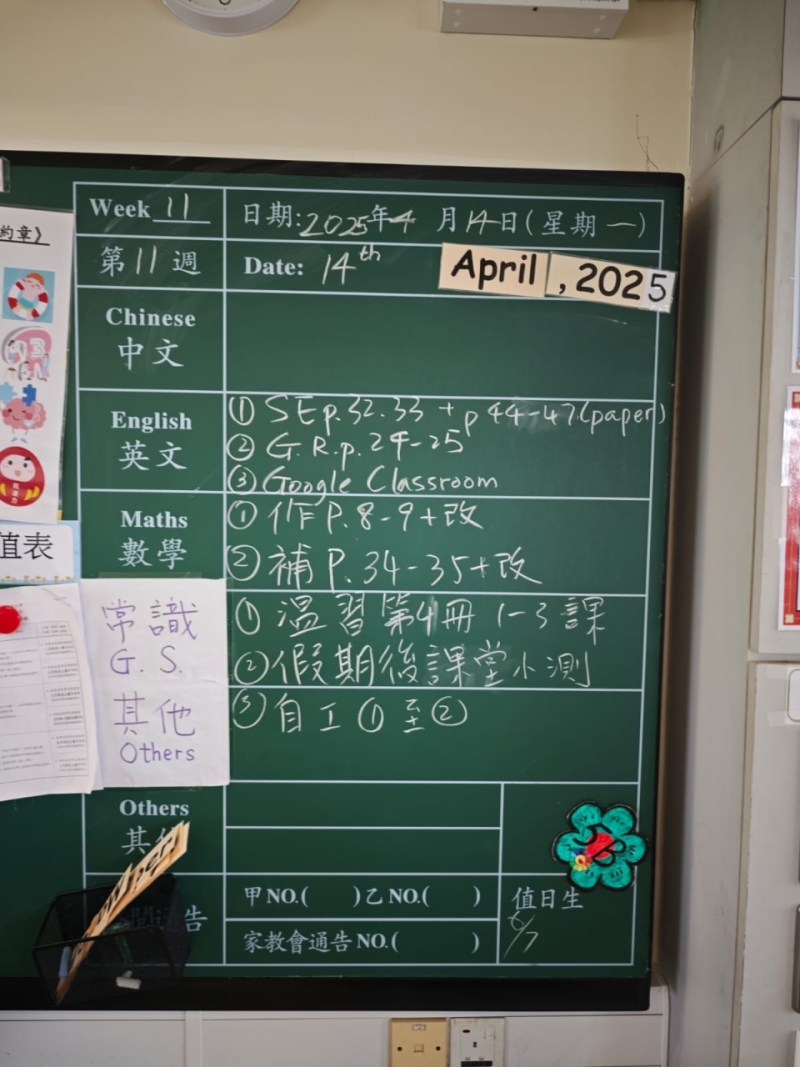 約章》
Week 11
日期:2025年4月14日(星期一)
第11週
Date: 14th April, 2025
Chinese
中文
English
英文
① SE p.32.33 + p 44-47.(paper)
② G.R.p.24-25
③ Google Classroom
Maths
數學
① 作 P.8-9+改
② 補 P.34-35+改
值表
常識
G.S.
① 溫習第4冊 1-3課
② 假期後課堂小測
其他
Others
③ 自工①至②
Others
其他
通告
甲NO.( )乙NO.( )
家教會通告NO.( )
值日生
6/7